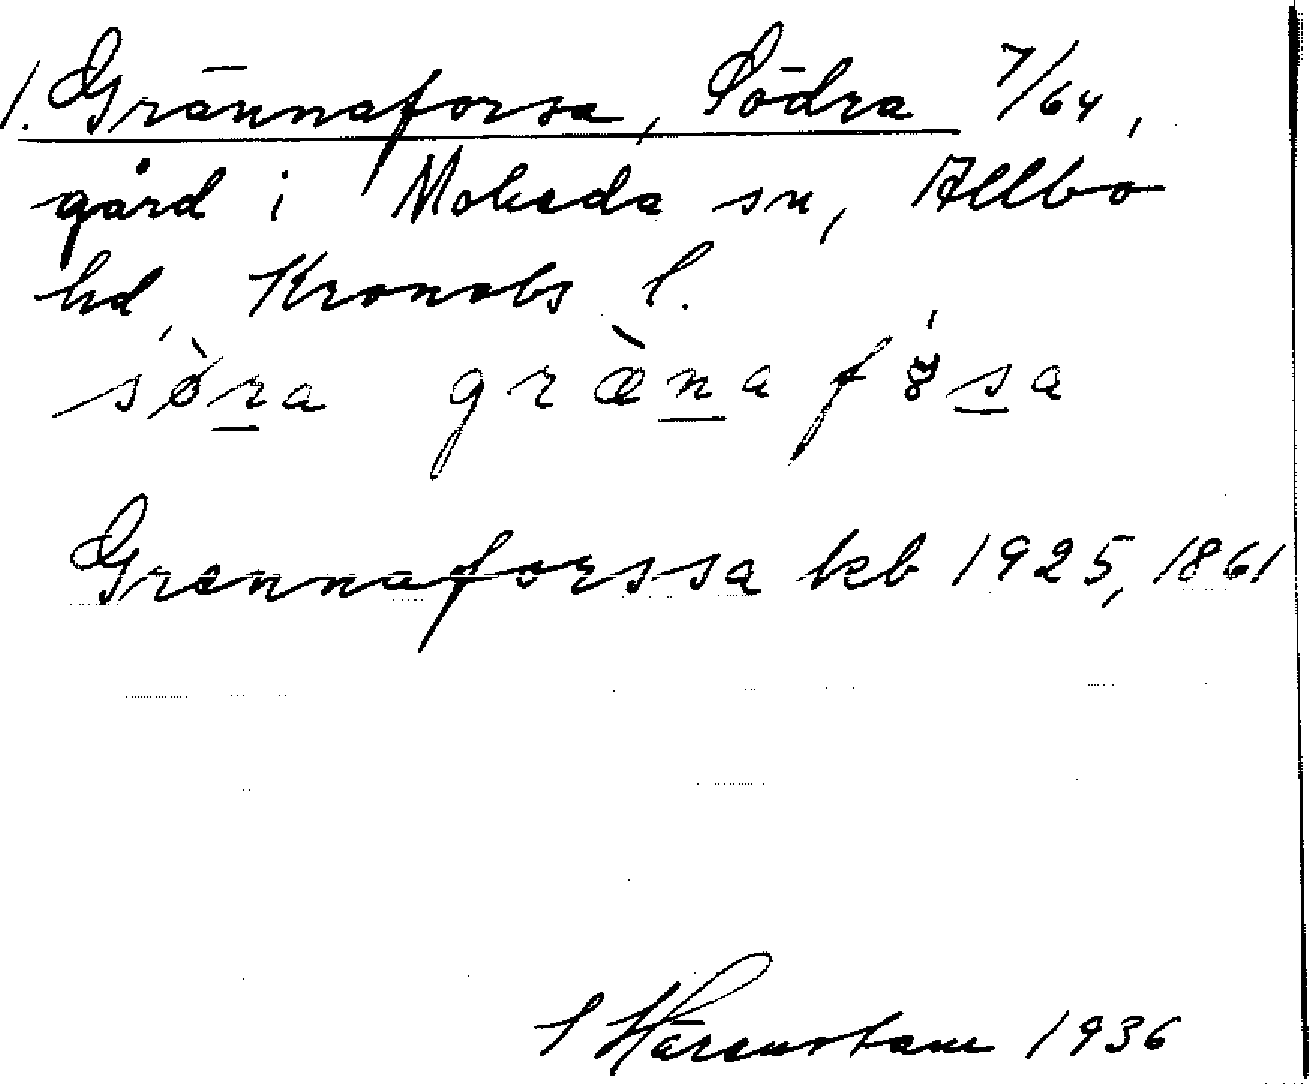 1. Grännaforsa, Södra 7/64,
gård i Moheda sn, Allbo
hd, Kronobs l.
sø̀ra græ̀nafɵ́sa
Grennaforssa kb 1925, 1861
S Härenstam 1936